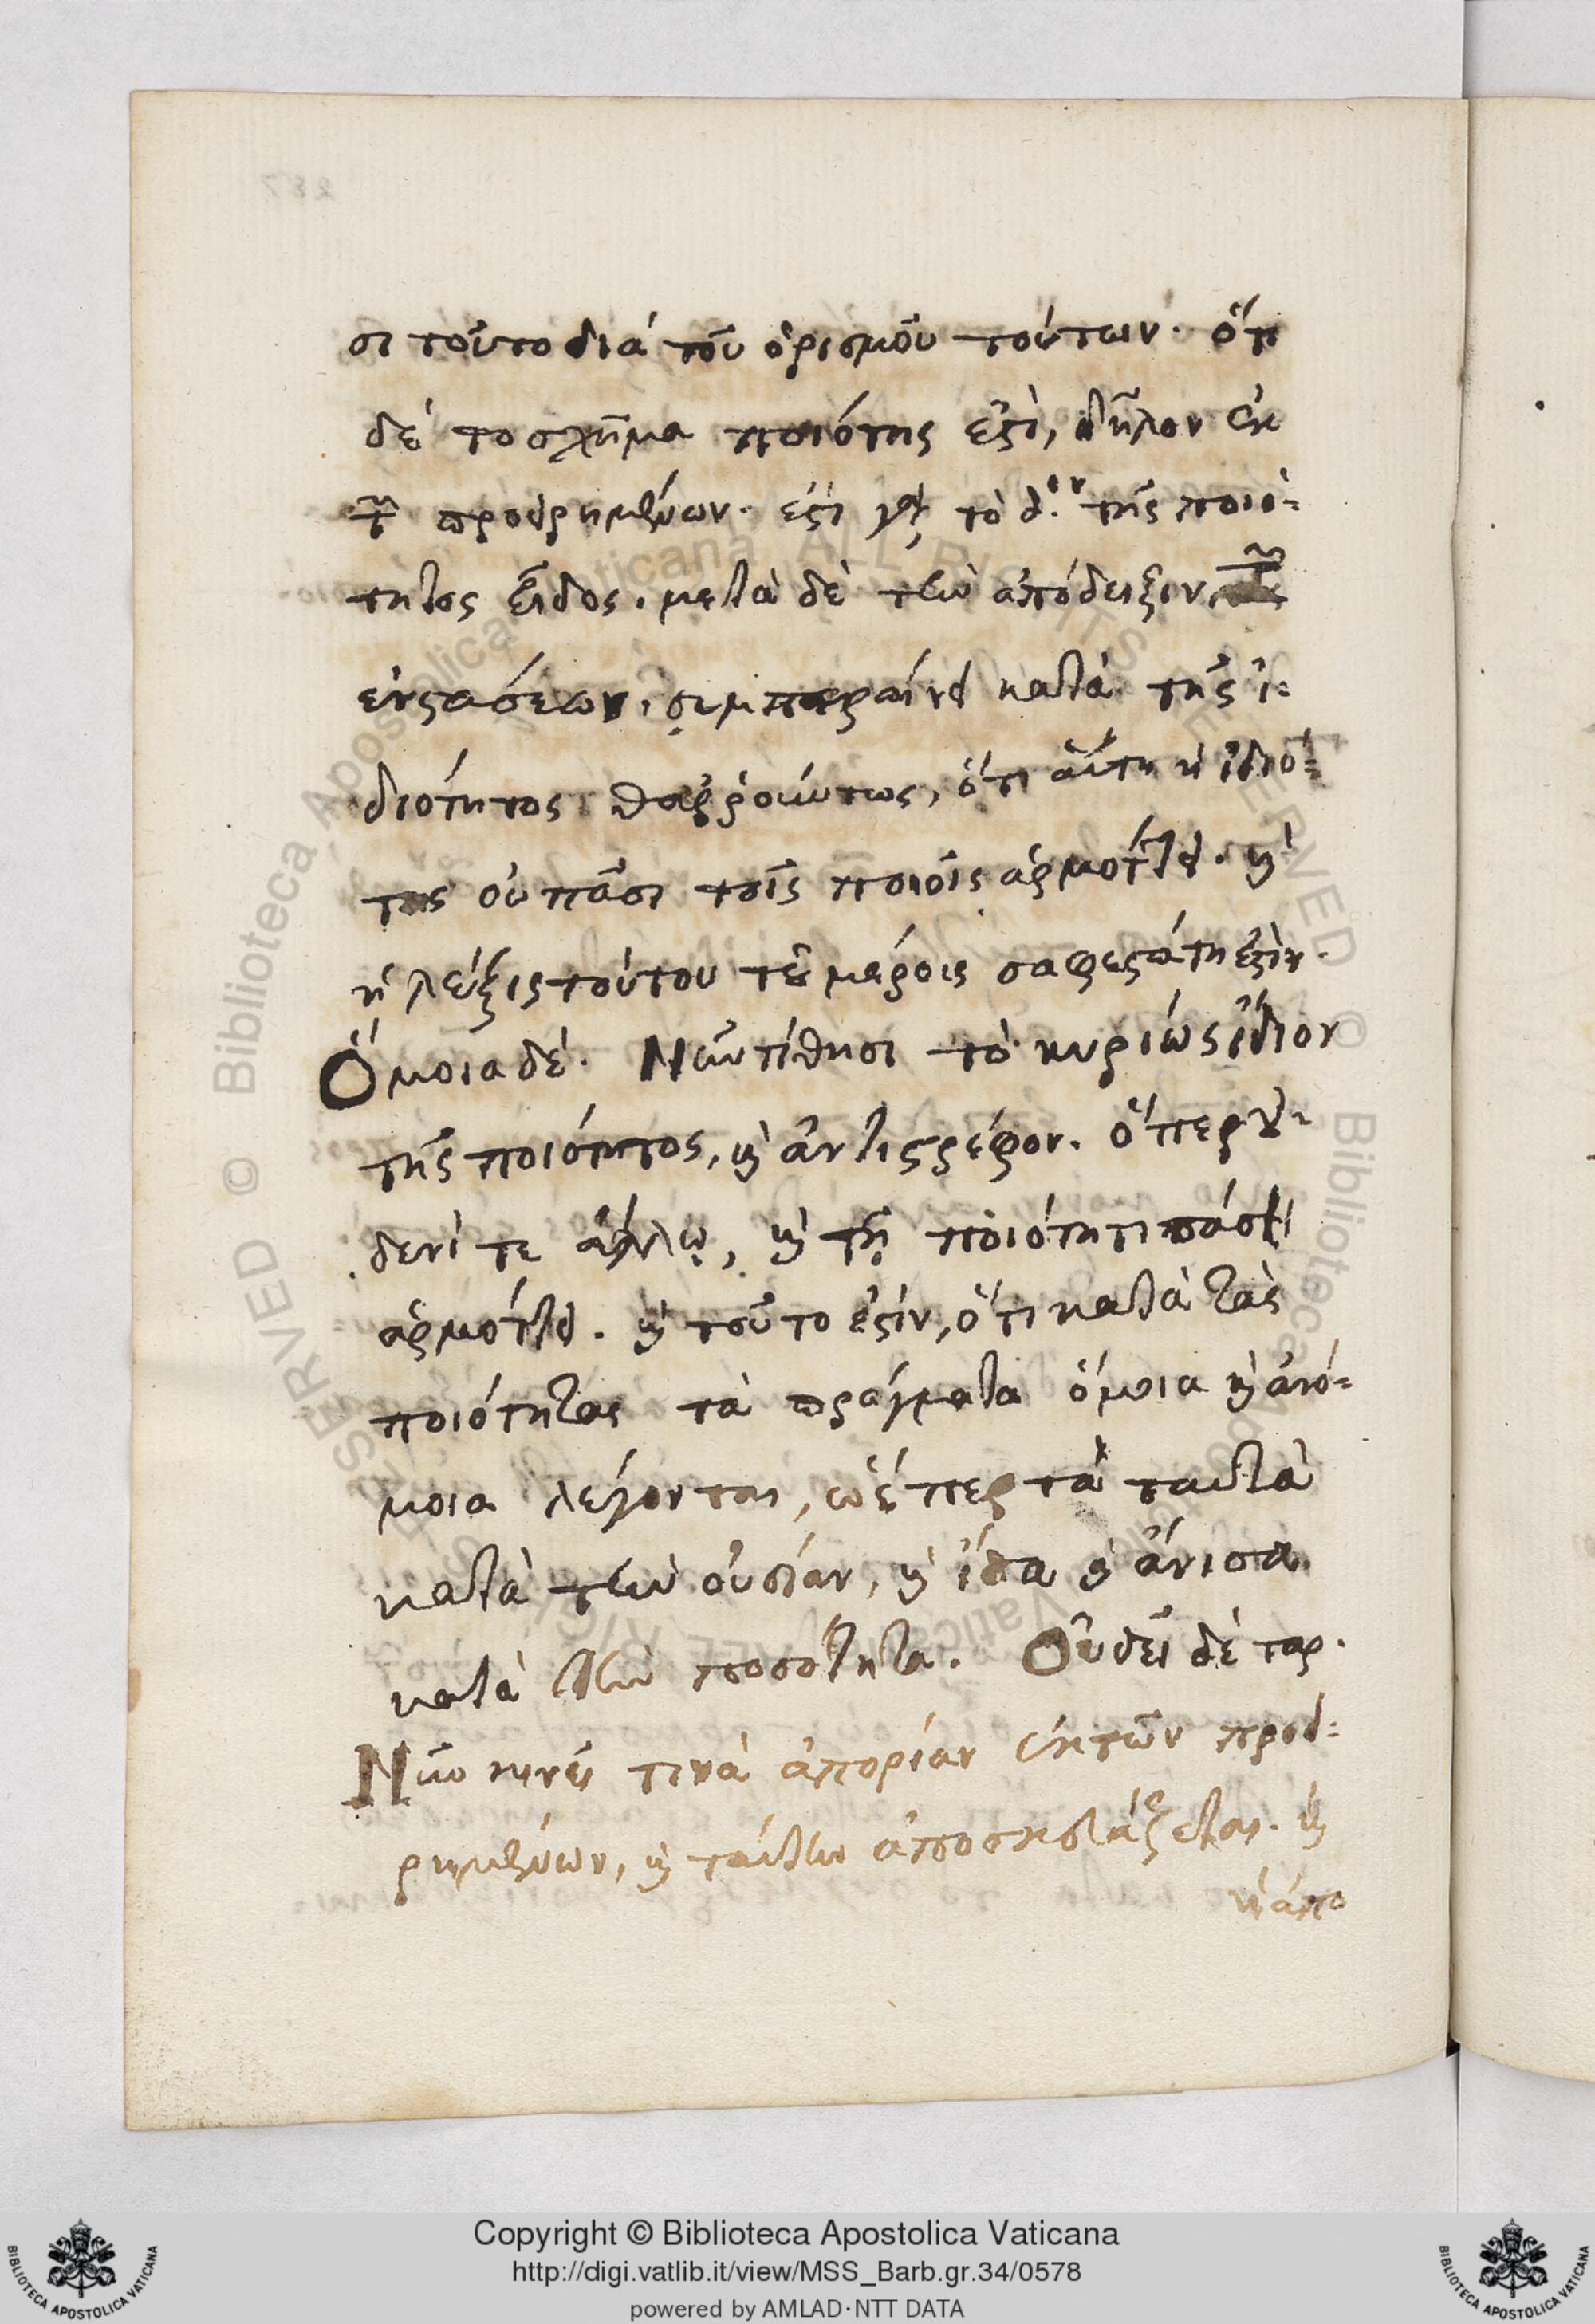 σι τοῦτο διά τοῦ ὁρισμοῦ τούτων. ὅτι
δέ το σχῆμα ποιότης ἐστὶ, δῆλον ἐκ
τῶν προειρημένων. ἐστὶ γὰρ τὸ δ.ον τῆς ποιό-
τητος εἶδος. μετὰ δὲ τὴν ἀπόδειξιν, τῶν
ἐνστάσεων, συμπεραίνει κατὰ τῆς ἰ-
διότητος θαῤῥούντως, ὅτι αὕτη ἡ ἰδιό-
της οὐ πᾶσι τοῖς ποιοῖς ἁρμόττει. καὶ
ἡ λέξις τούτου τοῦ μέρους σαφεστάτη ἐστὶν.
Ὅμοια δέ. Νῦν τίθησι τὸ κυρίως ἴδιον
τῆς ποιότητος, καὶ ἀντιστρέφον. ὅπερ οὐ-
δενί τε ἄλλῳ, καὶ τῇ ποιότητι πάσῃ
ἁρμόττει. καὶ τοῦτο ἐστίν, ὅτι κατὰ τὰς
ποιότητας τὰ πράγματα ὅμοια καὶ ἀνό-
μοια λέγονται, ὥσπερ τὰ ταυτὰ
κατὰ τὴν οὐσίαν, καὶ ἴσα καὶ ἄνισα
κατὰ τὴν ποσότητα. Οὐ δεῖ δὲ ταρ.
Νῦν κινεῖ τινὰ ἀπορίαν ἐκ τῶν προει-
ρημένων, καὶ ταύτην ἀποσκευάζεται. καὶ
ἡ ἀπο
Copyright © Biblioteca Apostolica Vaticana
http://digi.vatlib.it/view/MSS_Barb.gr.34/0578
powered by AMLAD·NTT DATA